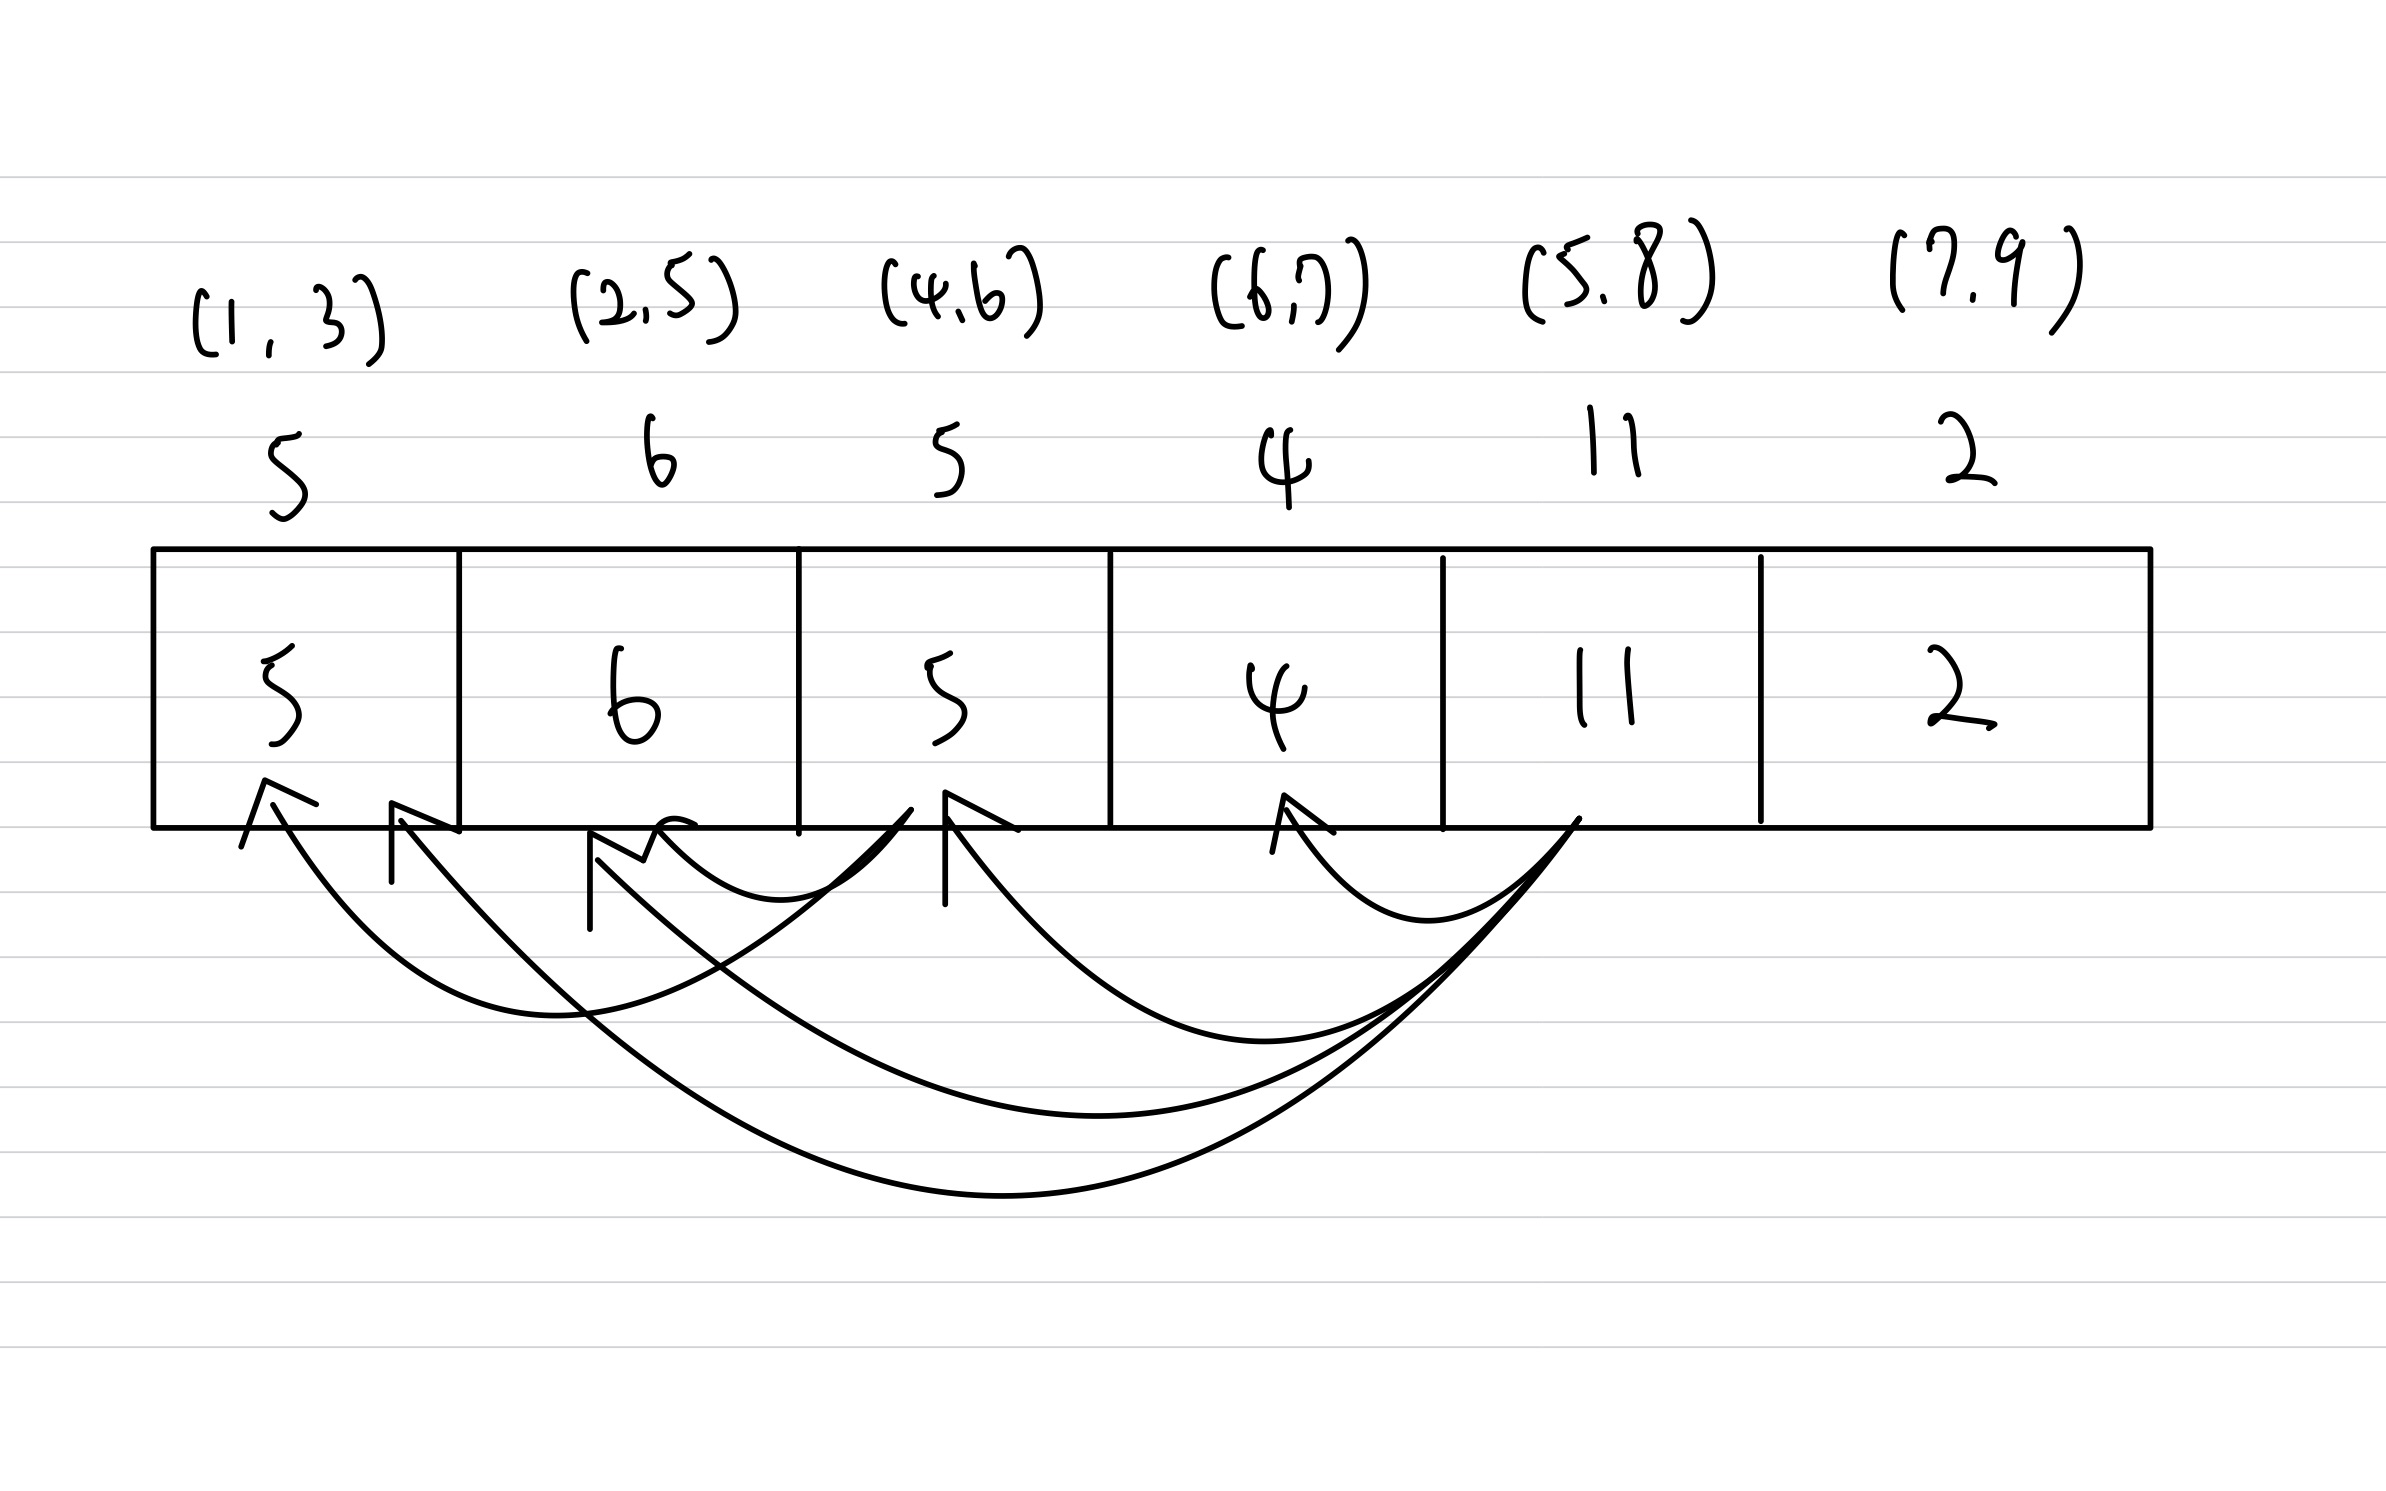 (1, 3) (2,5) (4,6) (6,7) (5,8) (7,9)
5 6 5 4 11 2
5 6 5 4 11 2